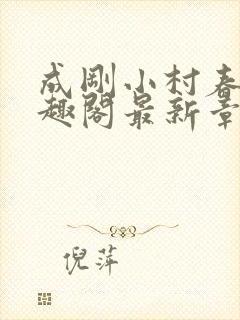 成刚小村春
趣阁最新章
倪萍